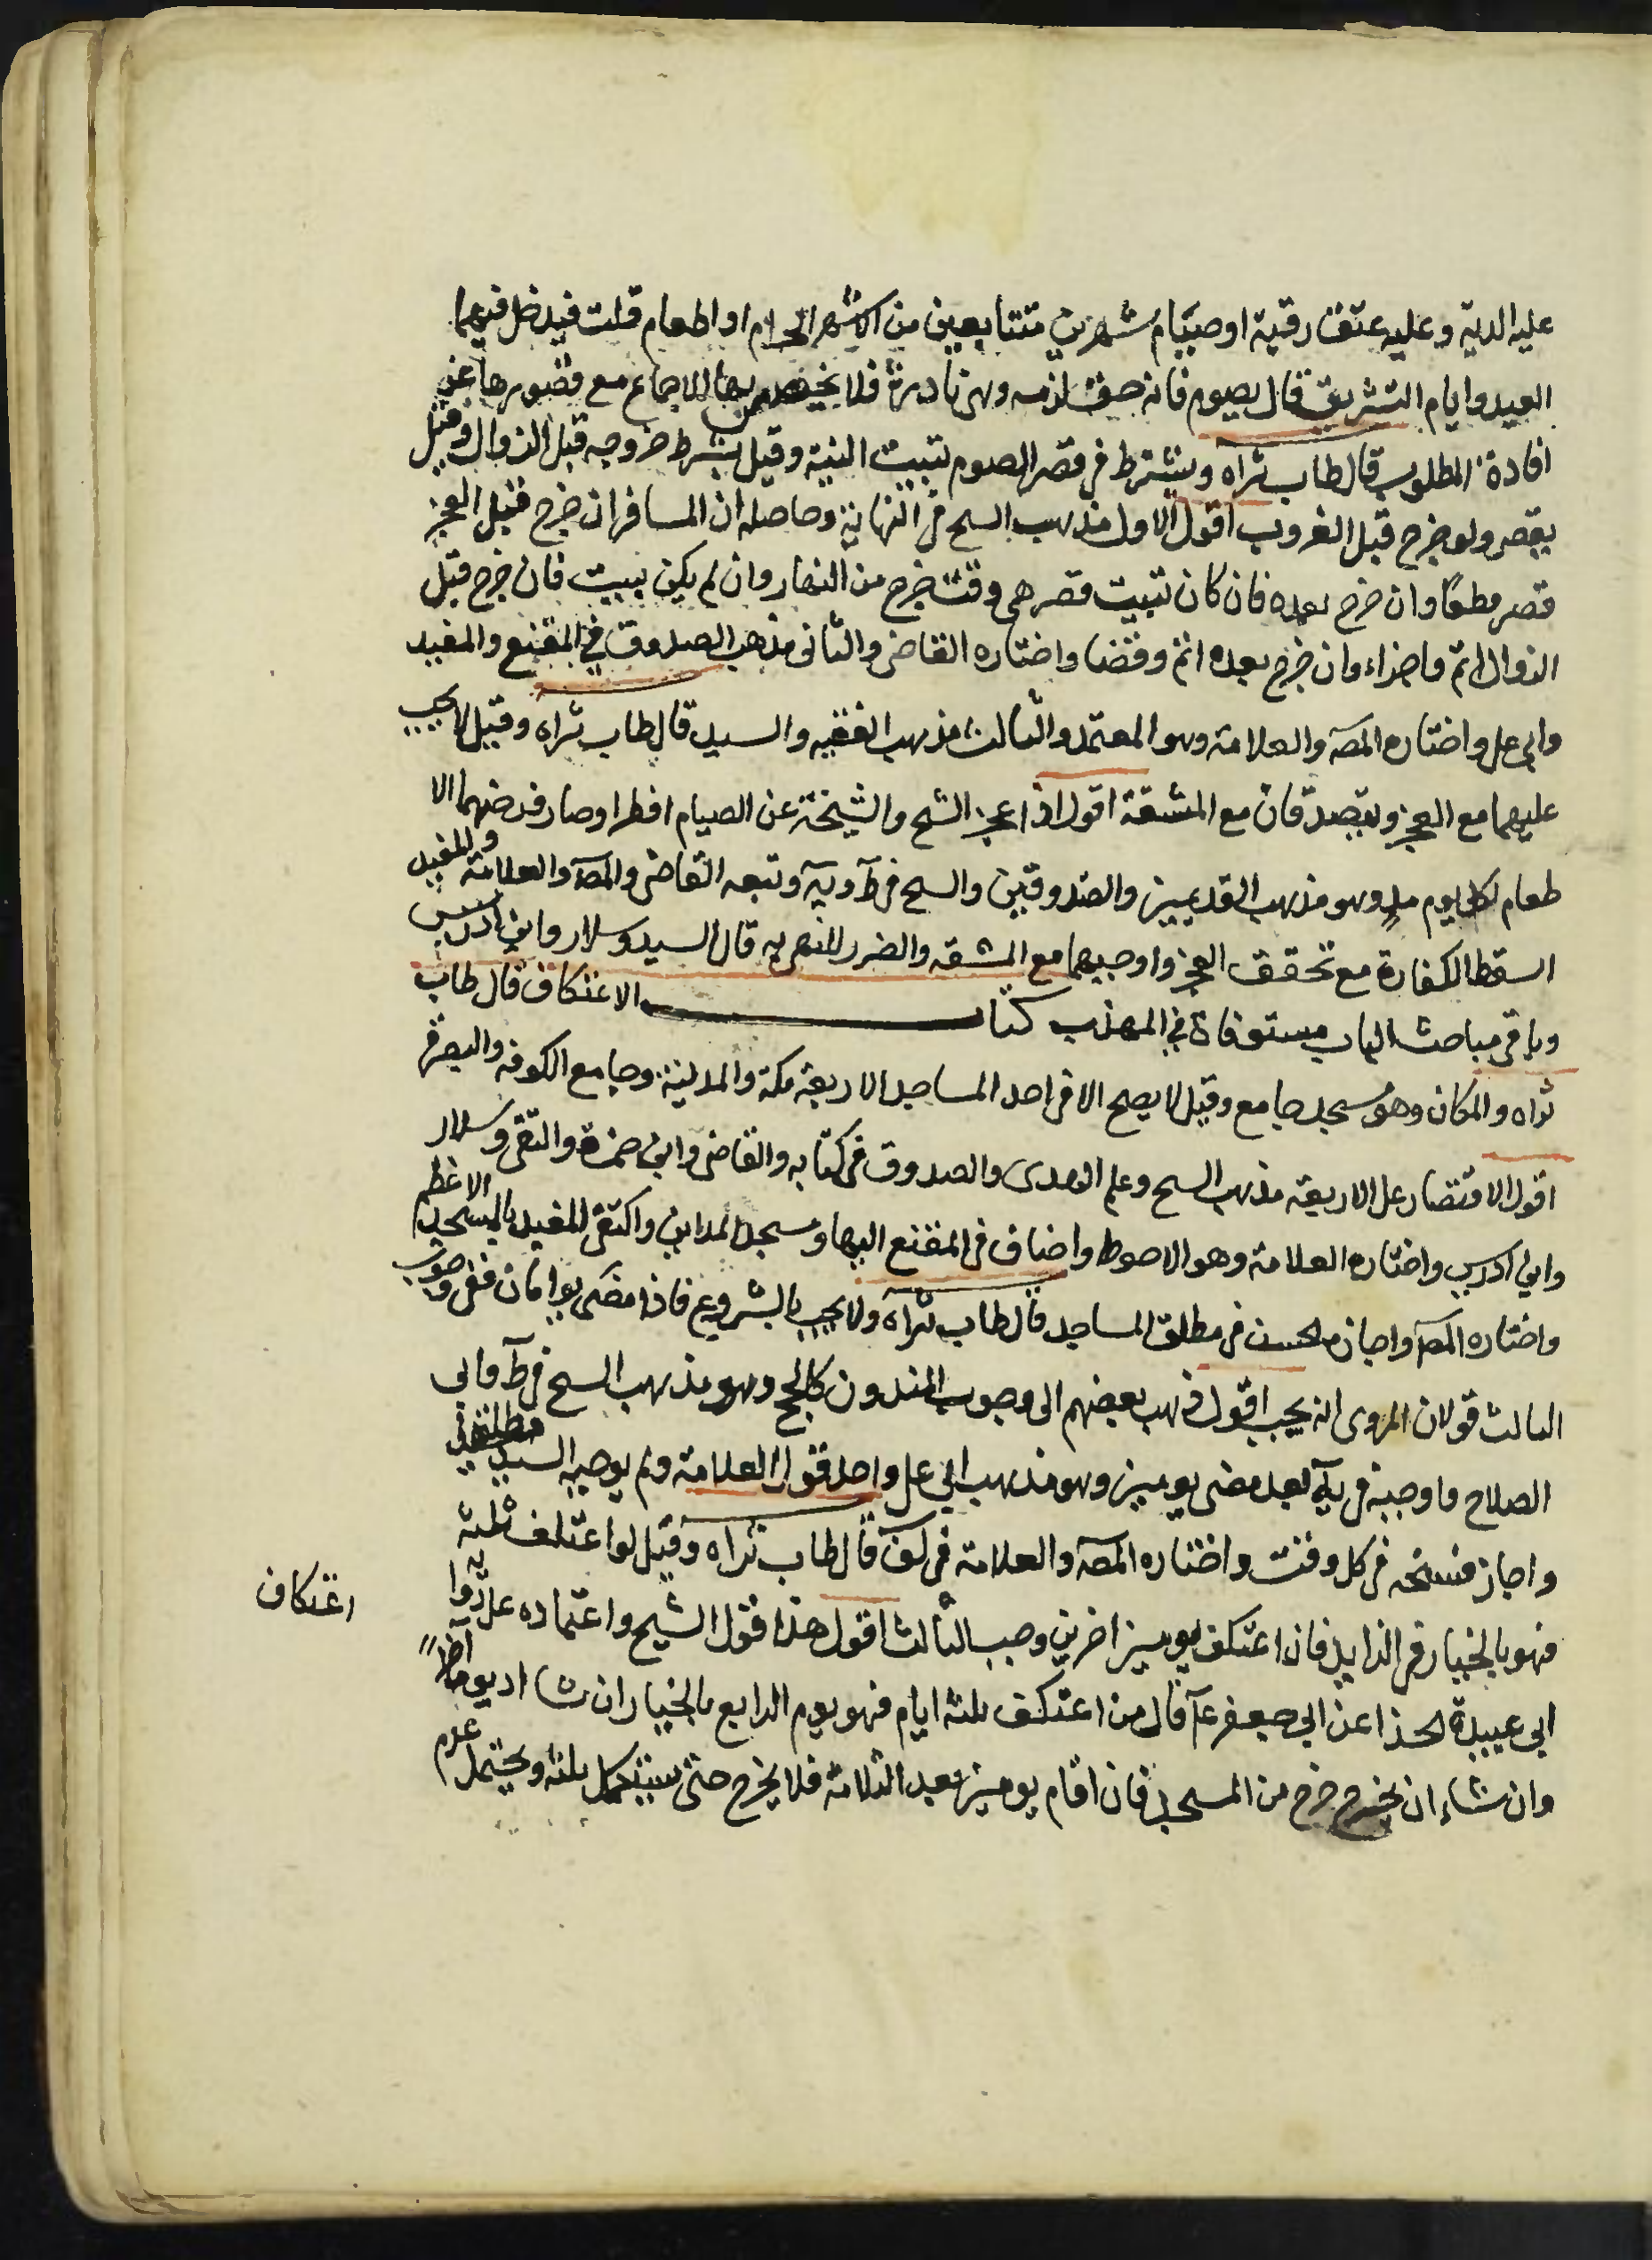 عليه الدية وعليه عتق رقبة او صيام شهرين متتابعين من الاشهر الحرام او اطعام قلت فيدخل فيهما
العيد وايام التشريق قال يصوم فانه حق لزمه وهى نادرة فلا يخصص بها الاجماع مع قصورها عن
افادة المطلوب قال طاب ثراه ويشترط فى قصر الصوم تبييت النية وقيل يشترط خروجه قبل الزوال وقيل
يقصر ولو خرج قبل الغروب اقول الاول مذهب الشيخ فى النهاية وحاصله ان المسافر ان خرج قبل الفجر
قصر مطلقا وان خرج بعده فان كان تبييت قصر هى وقت خرج من النهار وان لم يكن يبيت فان خرج قبل
الزوال اتم واجزاء وان خرج بعده اتم وقضا واختاره القاضى والثانى مذهب الصدوق في المقنع والمفيد
وابى على واختاره المصـ والعلامة وهو المعتمد والثالث مذهب الفقيه والسيد قال طاب ثراه وقيل لا يجب
عليهما مع العجز ويتصدقان مع المشقة اقول اذا عجز الشيخ والشيخة عن الصيام افطرا وصار فرضهما الا
طعام لكل يوم مد وهو مذهب القديمين والصدوقين والشيخ فى ط ويه وتبعه القاضى والمصـ والعلامة والمفيد
اسقط الكفارة مع تحقق العجز واوجبهما مع المشقة والضرر للنص به قال السيد وسلار وابن ادريس
وباقى مباحث الباب مستوفاة في المهذب كتاب الاعتكاف قال طاب
ثراه والمكان وهو مسجد جامع وقيل لا يصح الا فى احد المساجد الاربعة مكة والمدينة وجامع الكوفة والبصرة
اقول الاقتصار على الاربعة مذهب الشيخ وعلم الهدى والصدوق فى كتابه والقاضى وابن حمزة والتقى وسلار
وابن ادريس واختاره العلامة وهو الاحوط واضاف فى المقنع اليها ومسجد المداين واكتفى المفيد بالمسجد الاعظم
واختاره المصـ واجاز الحسن فى مطلق المساجد قال طاب ثراه ولا يجب بالشروع فاذا مضى يوامان ففى وجوب
الثالث قولان المروى انه يجب اقول ذهب بعضهم الى وجوب المندون كالحج وهو مذهب الشيخ فى ط وابى
الصلاح واوجبه فى يه بعد مضى يومين وهو مذهب ابى على واحد قول العلامة ولم يوجبه السيد مطلقا
واجاز فسخه فى كل وقت واختاره المصـ والعلامة فى لف قال طاب ثراه وقيل لو اعتكف ثلثة
فهو بالخيار فى الزايد فان اعتكف يومين اخرين وجب الثالث اقول هذا قول الشيخ واعتماده على رواية
ابى عبيدة الحذا عن ابى جعفر ع قال من اعتكف ثلثة ايام فهو يوم الرابع بالخيار ان شا اد يوما اخر
وان شاء ان يخرج خرج من المسجد فان اقام يومين بعد الثلاثة فلا يخرج حتى يستكمل ثلثة ويحتمل عدم
اعتكاف